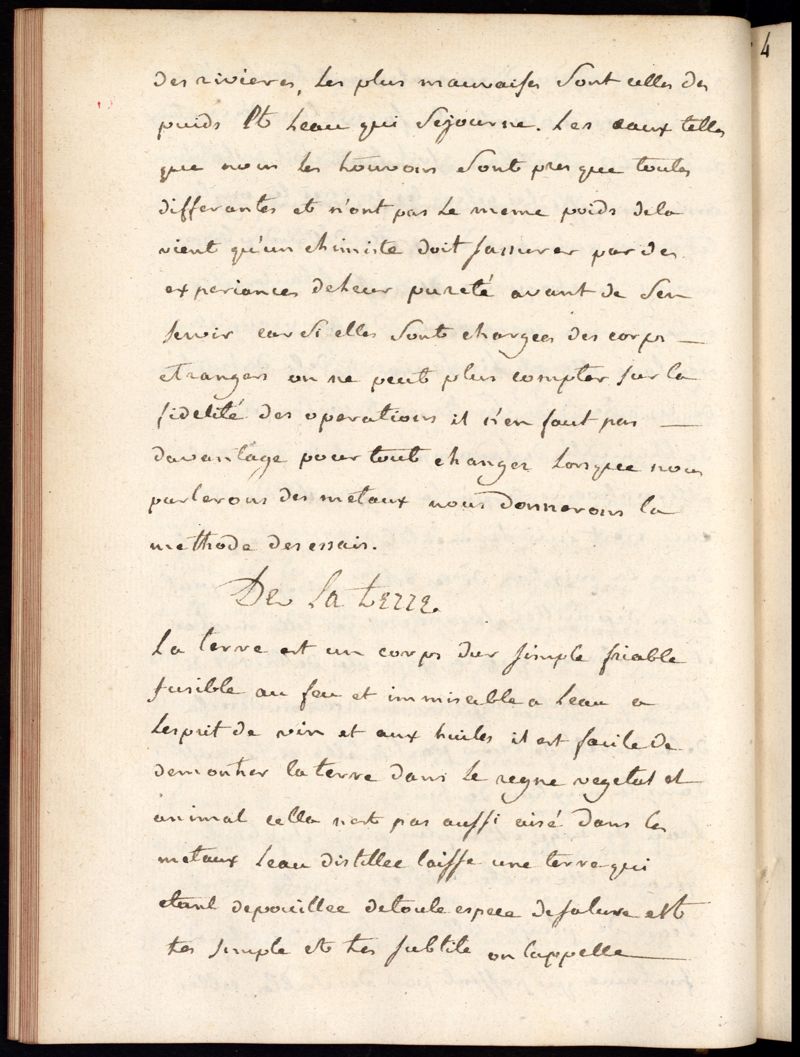 des rivieres, les plus mauvaises sont celles des
puids et leau qui sejourne. Les eaux telles
que nous les trouvons sont presque toutes
differantes et n'ont pas le meme poids dela
vient qu'un chimiste doit sassurer par des
experiances de leur pureté avant de s'en
servir car si elles sont chargees des corps
etrangers on ne peut plus compter sur la
fidelité des operations il n'en faut pas
davantage pour tout changer lorsque nous
parlerons des metaux nous donnerons la
methode des essais.
De la terre.
La terre est un corps dur simple friable
fusible au feu et immiscable a leau a
lesprit de vin et aux huiles il est facile de
demontrer la terre dans le regne vegetal et
animal cella n'est pas aussi aisé dans les
metaux leau distillee laisse une terre qui
etant depouillee de toute espece de salure est
tres simple et tres subtile on lappelle
4